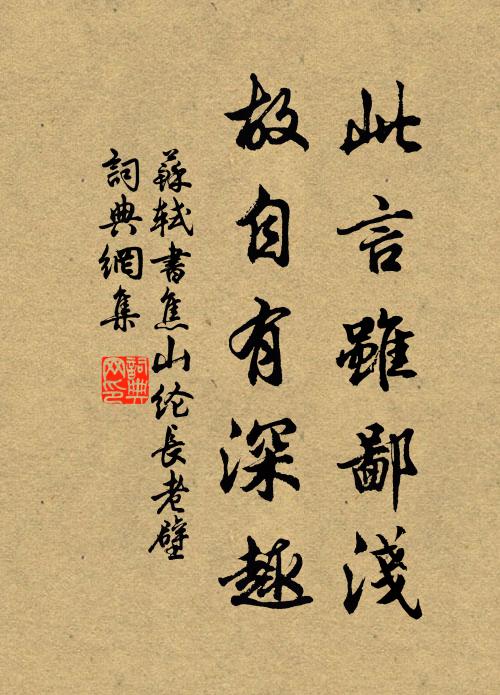 此言雖鄙淺
故自有深趣
蘇軾書焦山纶長老壁
詞典網集
詞典
网印